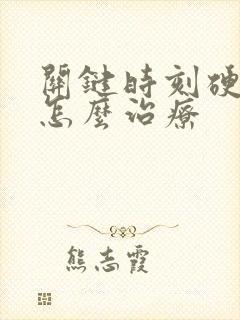 關鍵時刻硬
怎麼治療
熊志霞